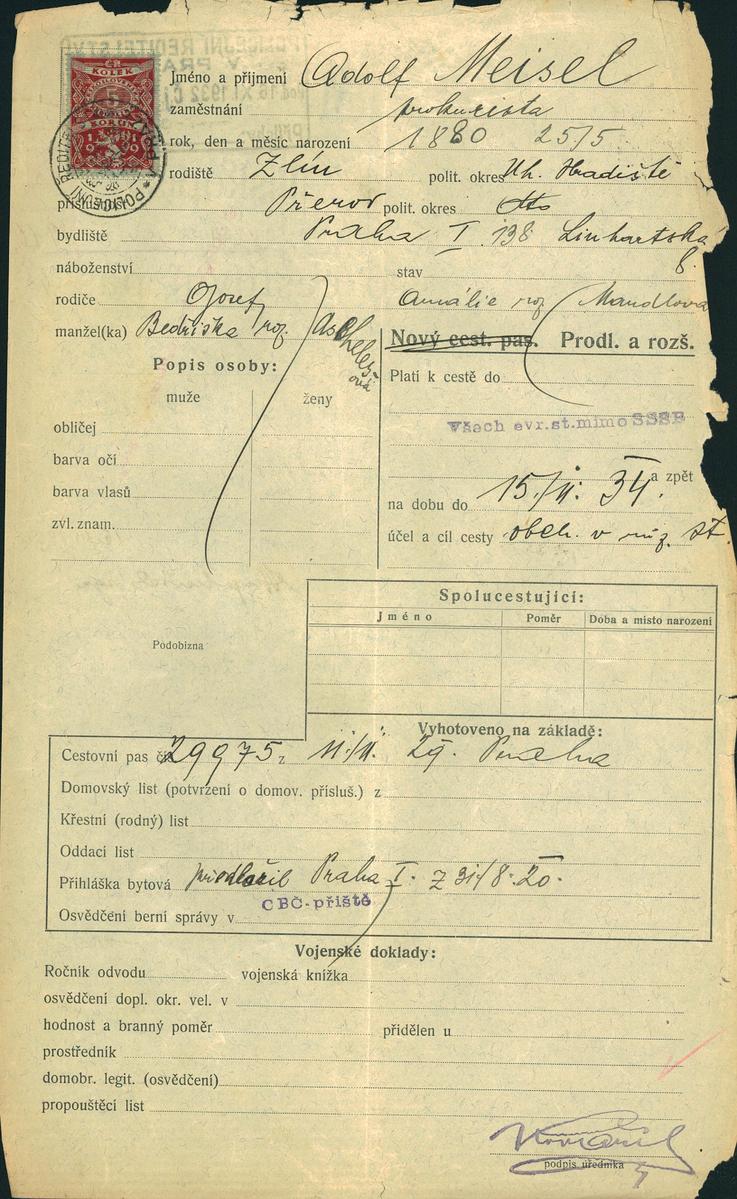 POLICEJNÍ ŘEDITELSTVÍ
V PRAZE
16 XI 1932
KOLEK
5
KORUN
Jméno a přijmení Adolf Meisel
zaměstnání prokurista
rok, den a měsíc narození 1880 25/5
rodiště Zlín polit. okres Uh. Hradiště
přísluš Přerov polit. okres dto
bydliště Praha I. 138 Linhartská
8.
náboženství stav
rodiče Josef Amálie roz. Mandlova
manžel(ka) Bedřiška roz.
Nový cest. pas. Prodl. a rozš.
Popis osoby:
Platí k cestě do
muže ženy
Všech evr.st.mimo SSSR
obličej
barva očí
a zpět
barva vlasů
na dobu do 15/II. 34.
zvl. znam.
účel a cíl cesty obch. v růz. st.
Spolucestující:
Jméno Poměr Doba a místo narození
Podobizna
Vyhotoveno na základě:
Cestovní pas č. 29975 z 11./II. 29. Praha
Domovský list (potvrzení o domov. přísluš.) z
Křestní (rodný) list
Oddací list
Přihláška bytová předložil Praha I. z 31/8. 20.
CBČ-příště
Osvědčení berní správy v
Vojenské doklady:
Ročník odvodu vojenská knížka
osvědčení dopl. okr. vel. v
hodnost a branný poměr přidělen u
prostředník
domobr. legit. (osvědčení)
propouštěcí list
podpis úředníka